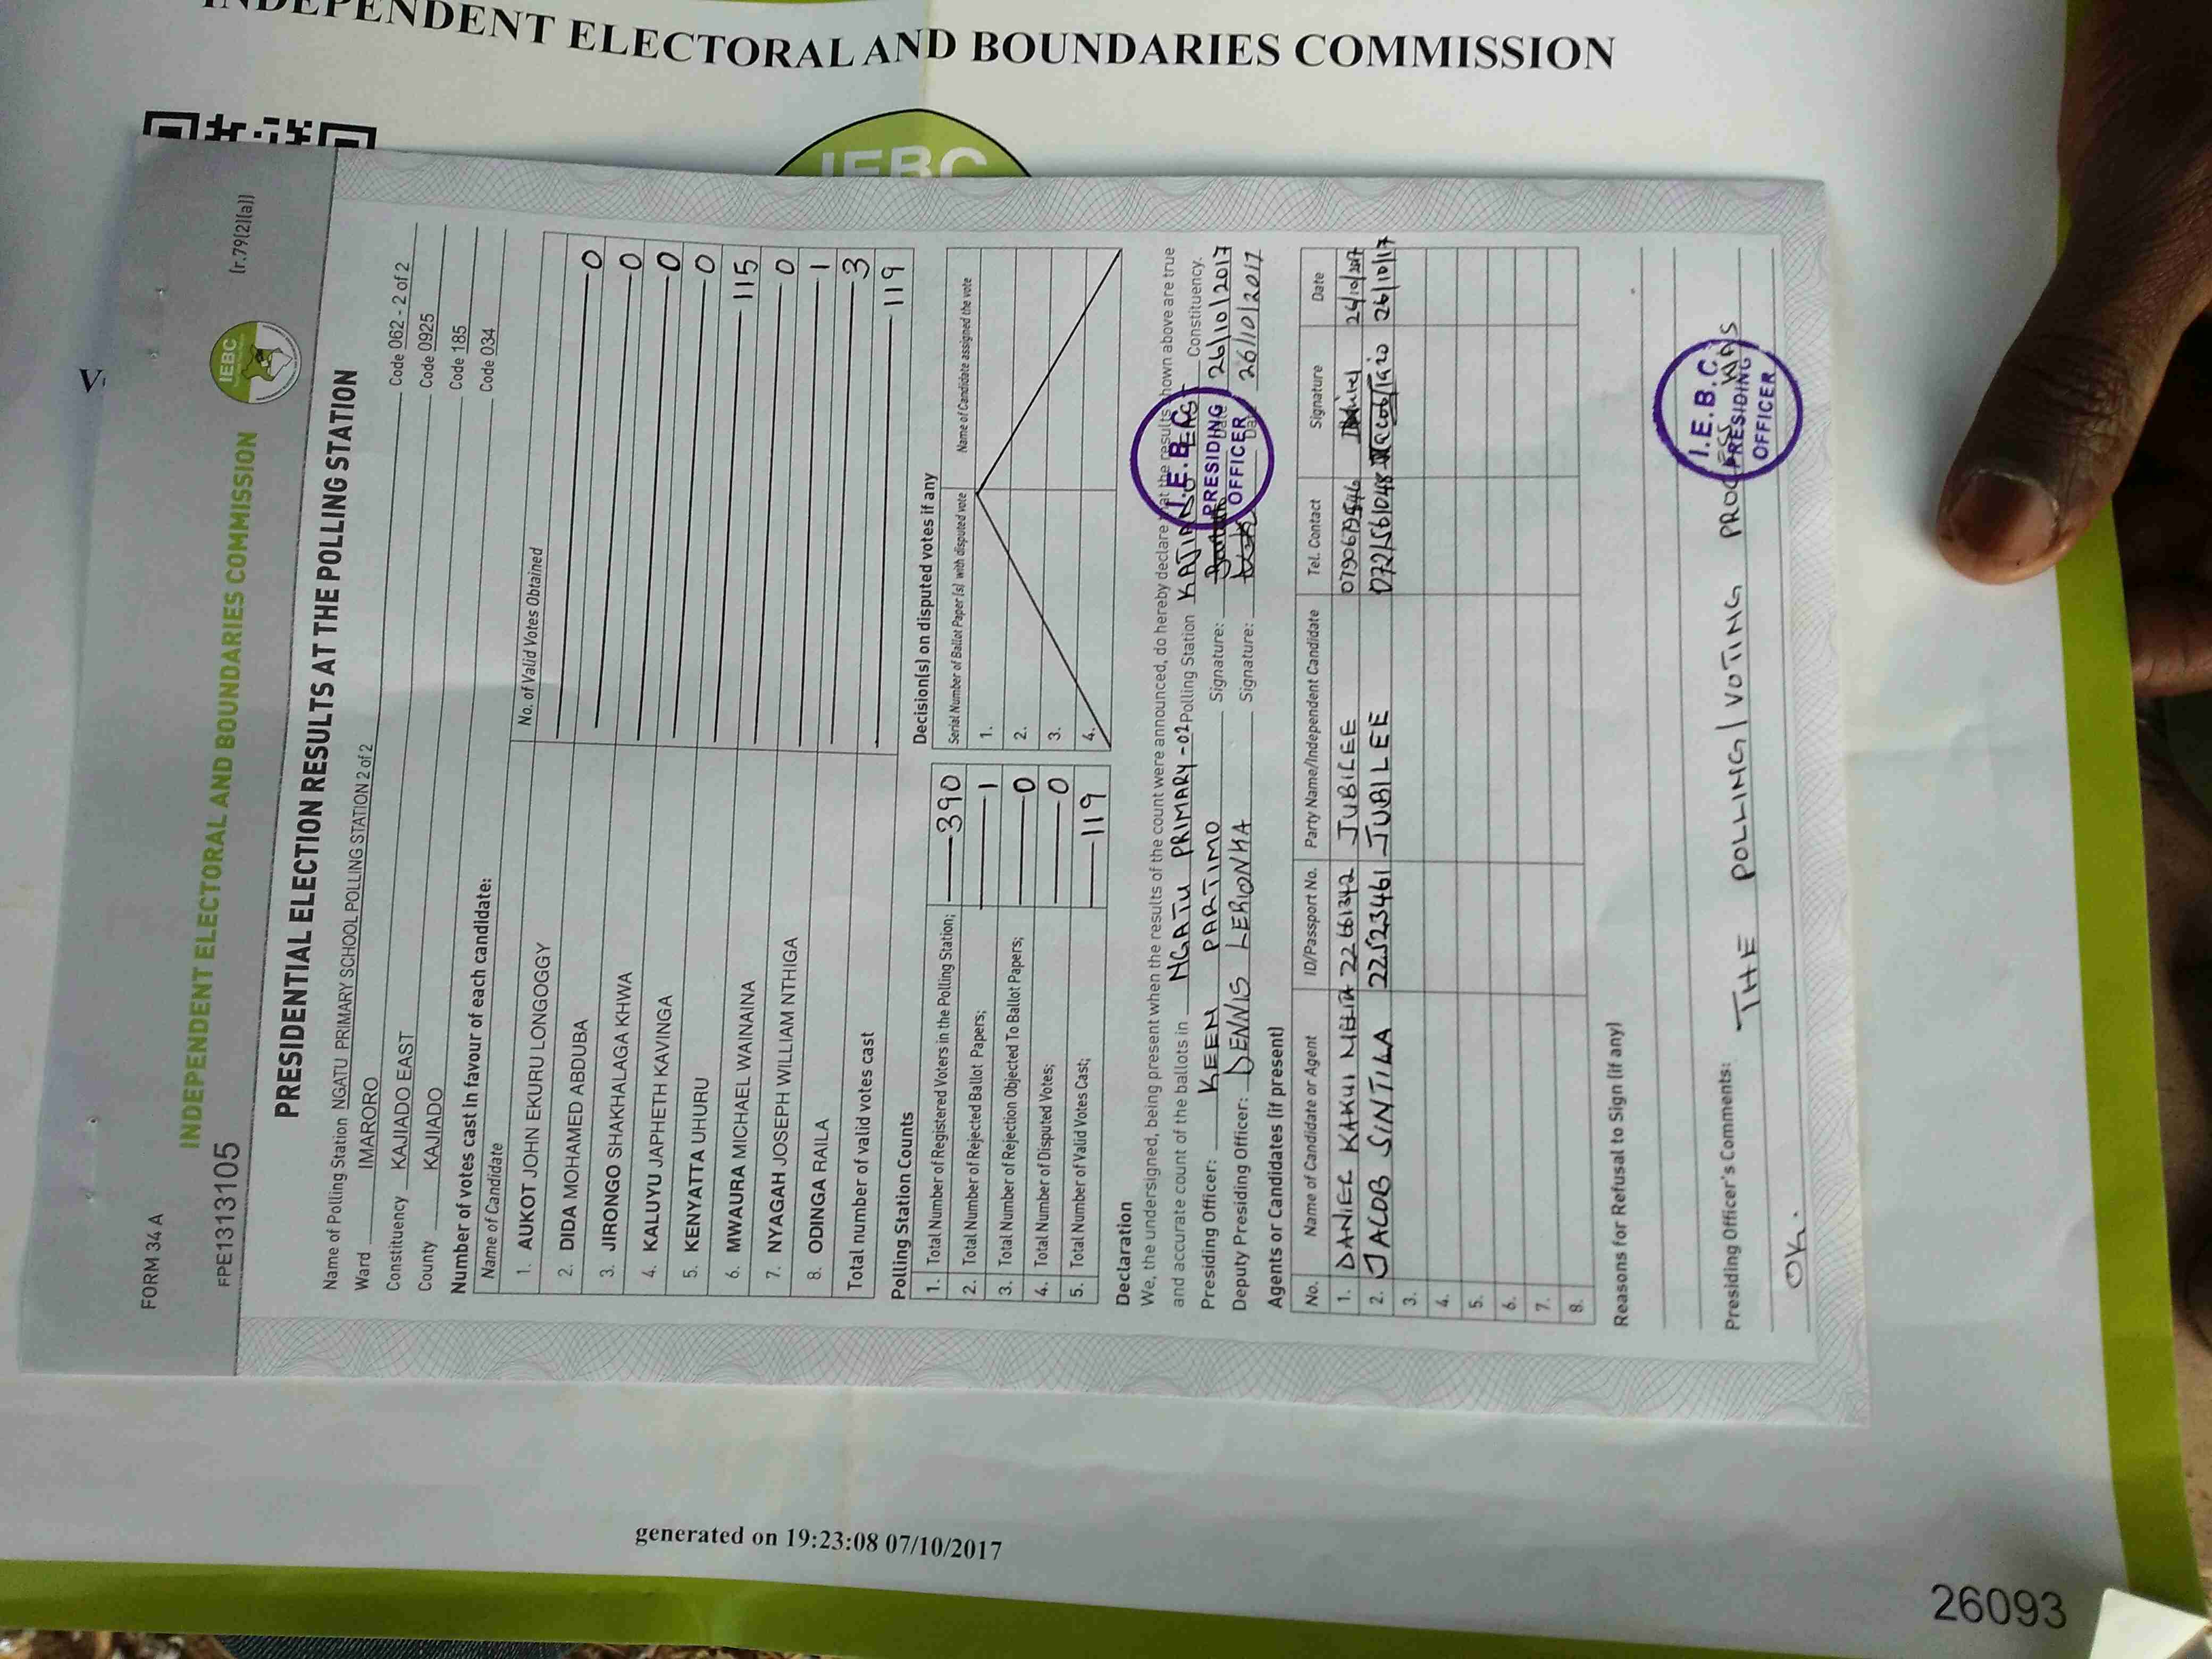 INDEPENDENT ELECTORAL AND BOUNDARIES COMMISSION
IEBC
FORM 34 A
INDEPENDENT ELECTORAL AND BOUNDARIES COMMISSION
IEBC
(r.79(2)(a))
FPE1313105
PRESIDENTIAL ELECTION RESULTS AT THE POLLING STATION
Name of Polling Station NGATU PRIMARY SCHOOL POLLING STATION 2 of 2 Code 062 - 2 of 2
Ward IMARORO Code 0925
Constituency KAJIADO EAST Code 185
County KAJIADO Code 034
Number of votes cast in favour of each candidate:
Name of Candidate No. of Valid Votes Obtained
1. AUKOT JOHN EKURU LONGOGGY 0
2. DIDA MOHAMED ABDUBA 0
3. JIRONGO SHAKHALAGA KHWA 0
4. KALUYU JAPHETH KAVINGA 0
5. KENYATTA UHURU 115
6. MWAURA MICHAEL WAINAINA 0
7. NYAGAH JOSEPH WILLIAM NTHIGA 1
8. ODINGA RAILA 3
Total number of valid votes cast 119
Polling Station Counts
1. Total Number of Registered Voters in the Polling Station; 390
2. Total Number of Rejected Ballot Papers; 1
3. Total Number of Rejection Objected To Ballot Papers; 0
4. Total Number of Disputed Votes; 0
5. Total Number of Valid Votes Cast; 119
Decision(s) on disputed votes if any
Serial Number of Ballot Paper (s) with disputed vote Name of Candidate assigned the vote
1.
2.
3.
4.
Declaration
We, the undersigned, being present when the results of the count were announced, do hereby declare that the results shown above are true
and accurate count of the ballots in NGATU PRIMARY -02 Polling Station KAJIADO EAST Constituency.
Presiding Officer: KEEN PARTIMO Signature: Date 26/10/2017
Deputy Presiding Officer: DENNIS LERIONKA Signature: Date 26/10/2017
I.E.B.C.
PRESIDING
OFFICER
Agents or Candidates (if present)
No. Name of Candidate or Agent ID/Passport No. Party Name/Independent Candidate Tel. Contact Signature Date
1. DANIEL KAKUI 22661342 JUBILEE Daniel 26/10/2017
2. JACOB SINTILA 22523461 JUBILEE 0721561048 26/10/17
3.
4.
5.
6.
7.
8.
Reasons for Refusal to Sign (if any)
Presiding Officer's Comments: THE POLLING/VOTING PROCESS WAS
OK.
I.E.B.C.
PRESIDING
OFFICER
generated on 19:23:08 07/10/2017
26093